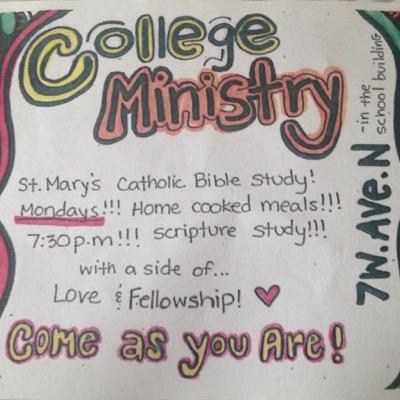 College
Ministry
St. Mary's Catholic Bible Study!
Mondays!!! Home cooked meals!!!
7:30p.m!!! Scripture study!!!
with a side of...
Love & Fellowship!
Come as you Are!
7W. Ave. N
-in the
school building